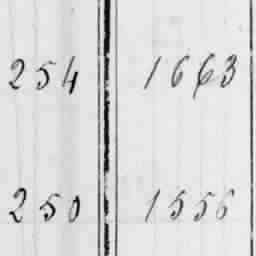 254 1663
250 1556